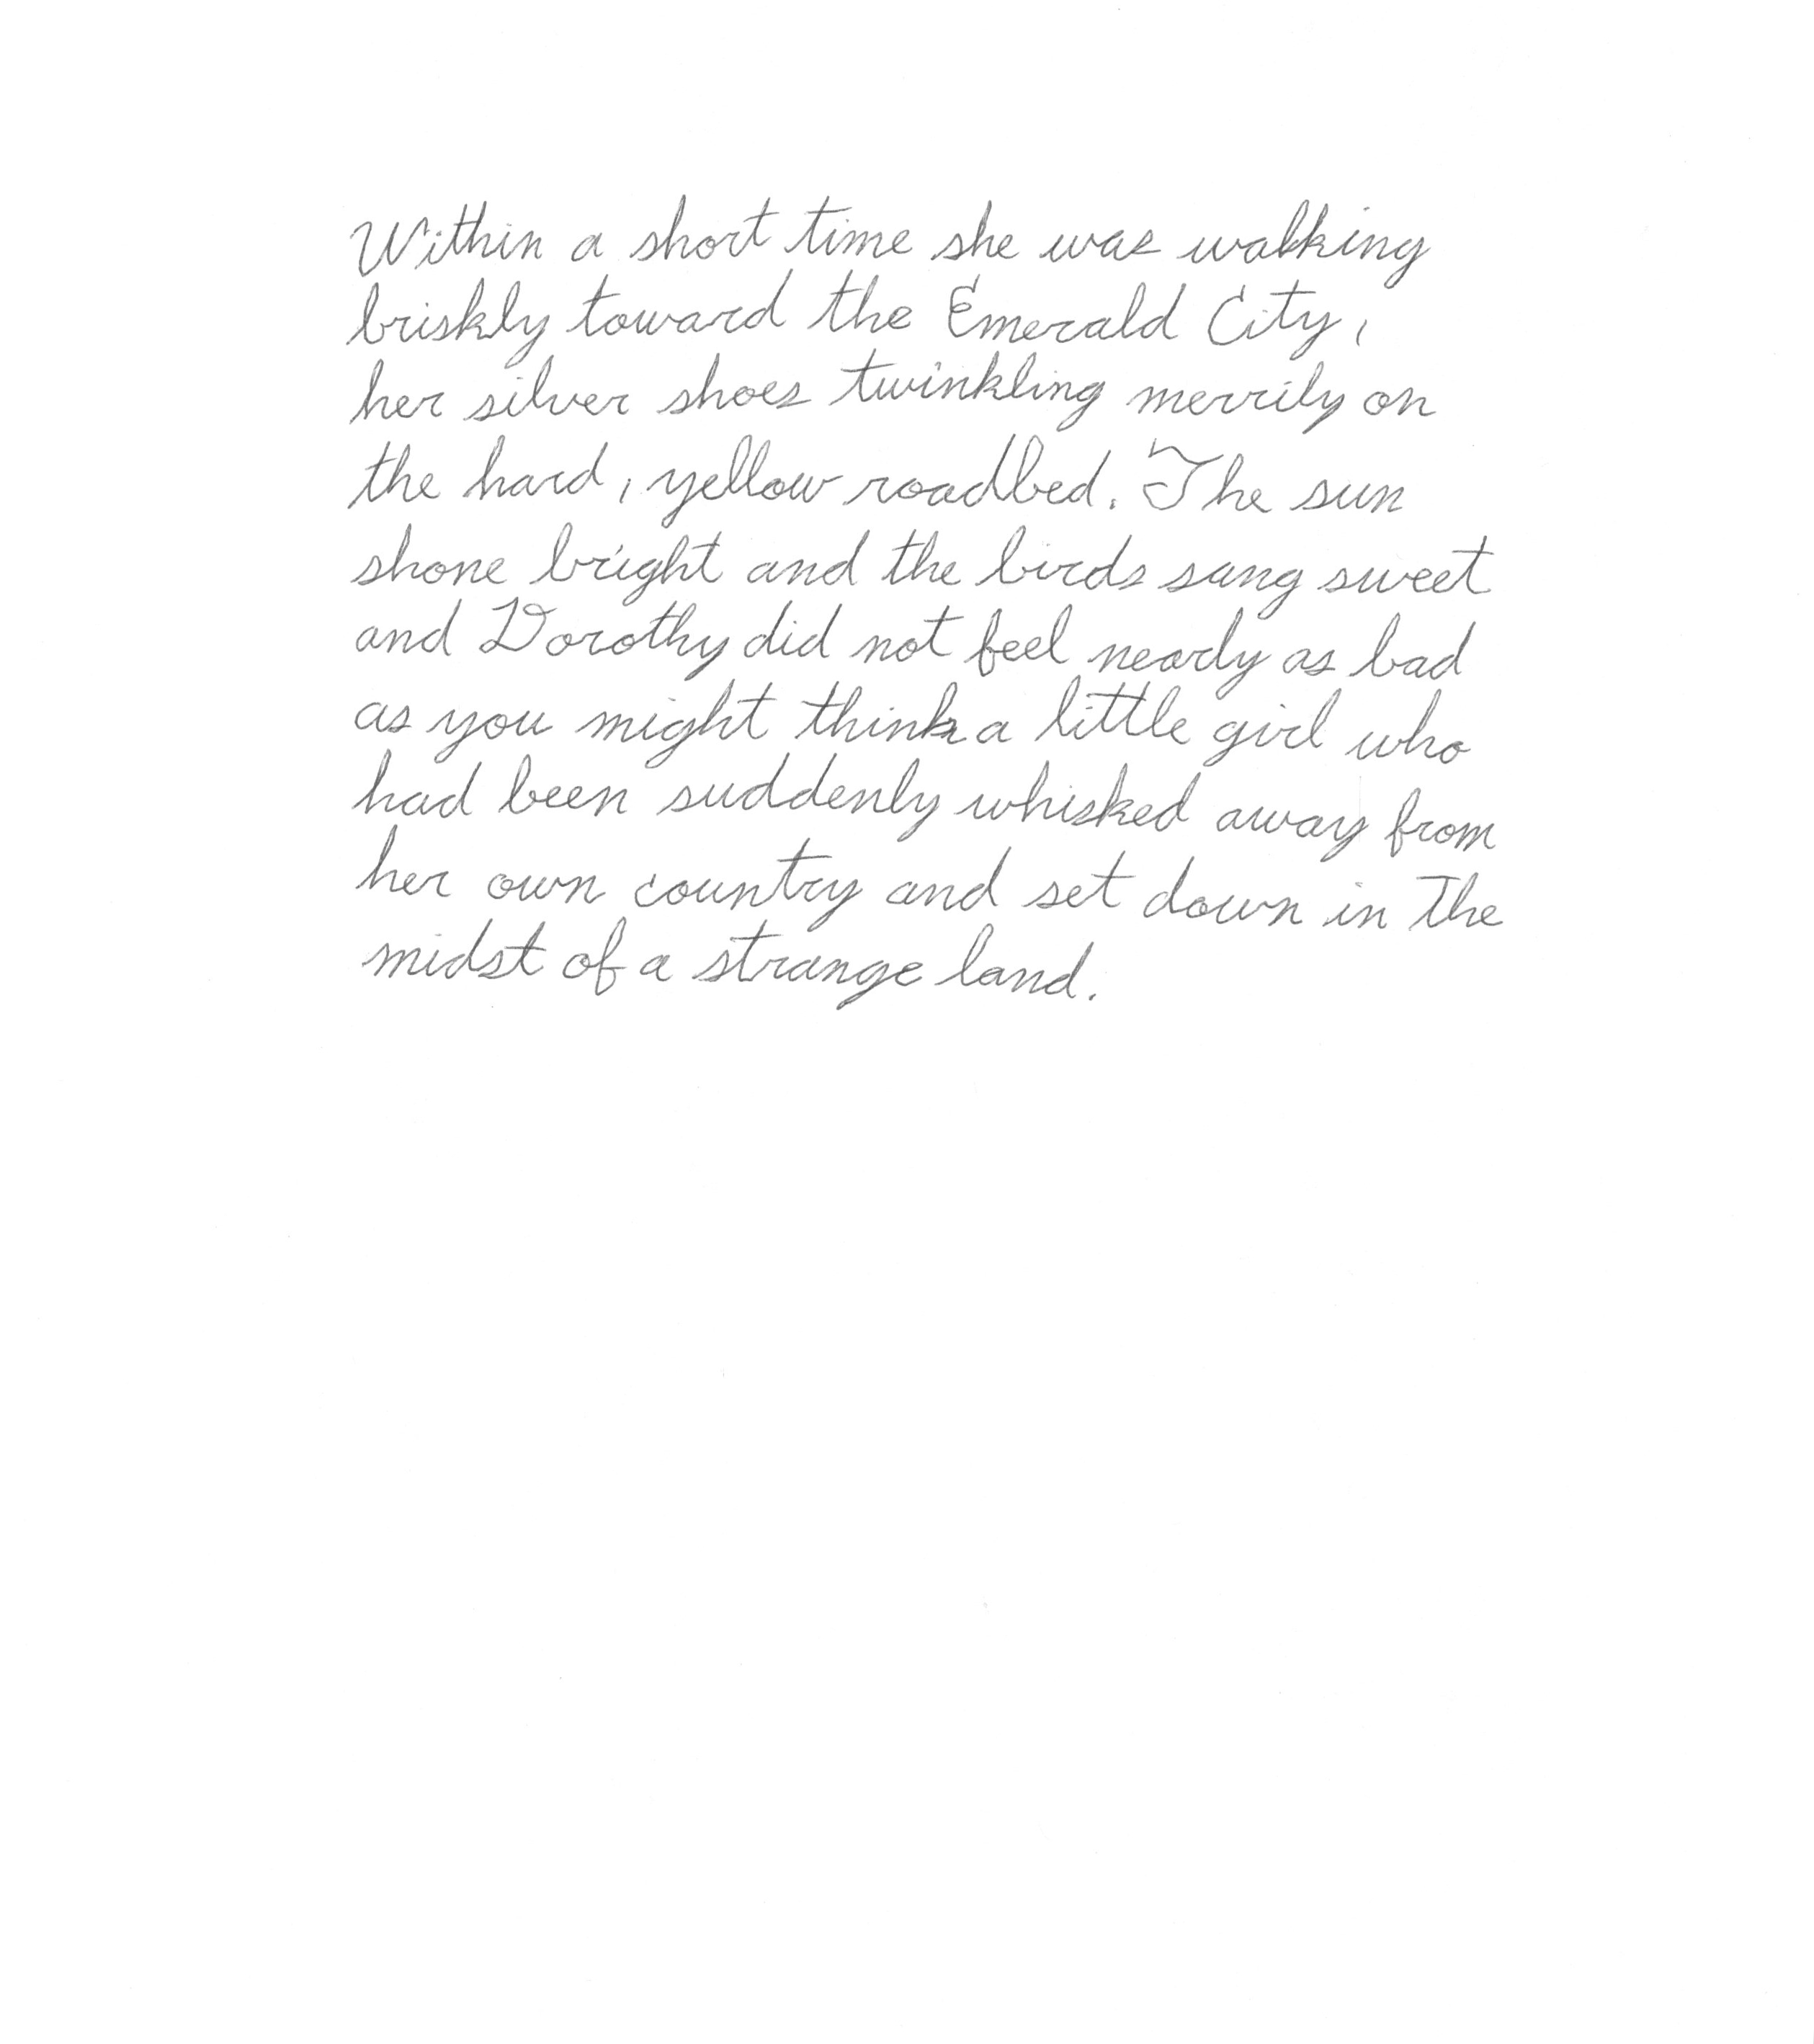 Within a short time she was walking
briskly toward the Emerald City,
her silver shoes twinkling merrily on
the hard, yellow roadbed. The sun
shone bright and the birds sang sweet
and Dorothy did not feel nearly as bad
as you might think a little girl who
had been suddenly whisked away from
her own country and set down in the
midst of a strange land.